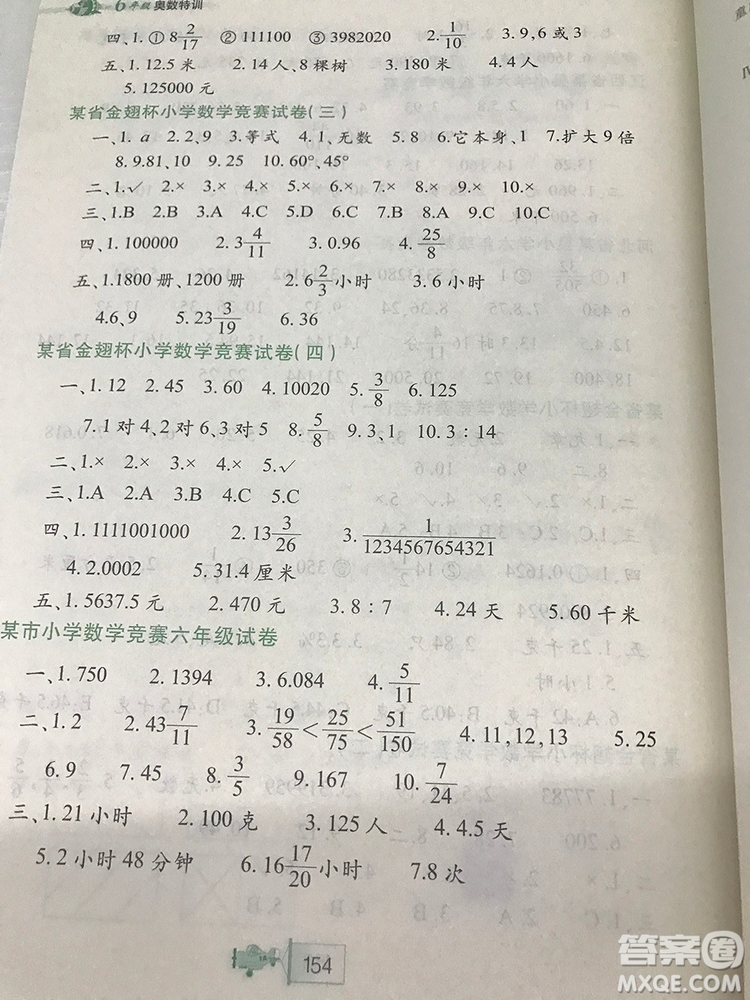 6年级 奥数特训
四、1.① 8 2/17 ② 111100 ③ 3982020 2. 1/10
五、1.12.5 米 2.14 人、8 棵树 3.180 米 4.4 人
5.125000 元
某省金翅杯小学数学竞赛试卷(三)
一、1. a 2.2,9 3.等式 4.1、无数 5.8 6.它本身、1 7.扩大 9 倍
8.9.81、10 9.25 10.60°,45°
二、1.√ 2.× 3.× 4.× 5.× 6.× 7.× 8.× 9.× 10.×
三、1.B 2.B 3.A 4.C 5.D 6.C 7.B 8.A 9.C 10.C
四、1.100000 2.3 4/11 3.0.96 4. 25/8
五、1.1800 册、1200 册 2.6 2/3 小时 3.6 小时
4.6、9 5.23 3/19 6.36
某省金翅杯小学数学竞赛试卷(四)
一、1.12 2.45 3.60 4.10020 5. 3/8 6.125
7.1 对 4、2 对 6、3 对 5 8. 5/8 9.3、1 10.3∶14
二、1.× 2.× 3.× 4.× 5.√
三、1.A 2.B 3.A 4.C 5.C
四、1.1111001000 2.13 3/26 3. 1/1234567654321
4.2.0002 5.31.4 厘米
五、1.5637.5 元 2.470 元 3.8∶7 4.24 天 5.60 千米
某市小学数学竞赛六年级试卷
一、1.750 2.1394 3.6.084 4. 5/11
二、1.2 2.43 7/11 3. 19/58<25/75<51/150 4.11,12,13 5.25
6.9 7.45 8. 3/5 9.167 10. 7/24
三、1.21 小时 2.100 克 3.125 人 4.4.5 天
5.2 小时 48 分钟 6.16 17/20 小时 7.8 次
154
答案卷
MXQE.COM